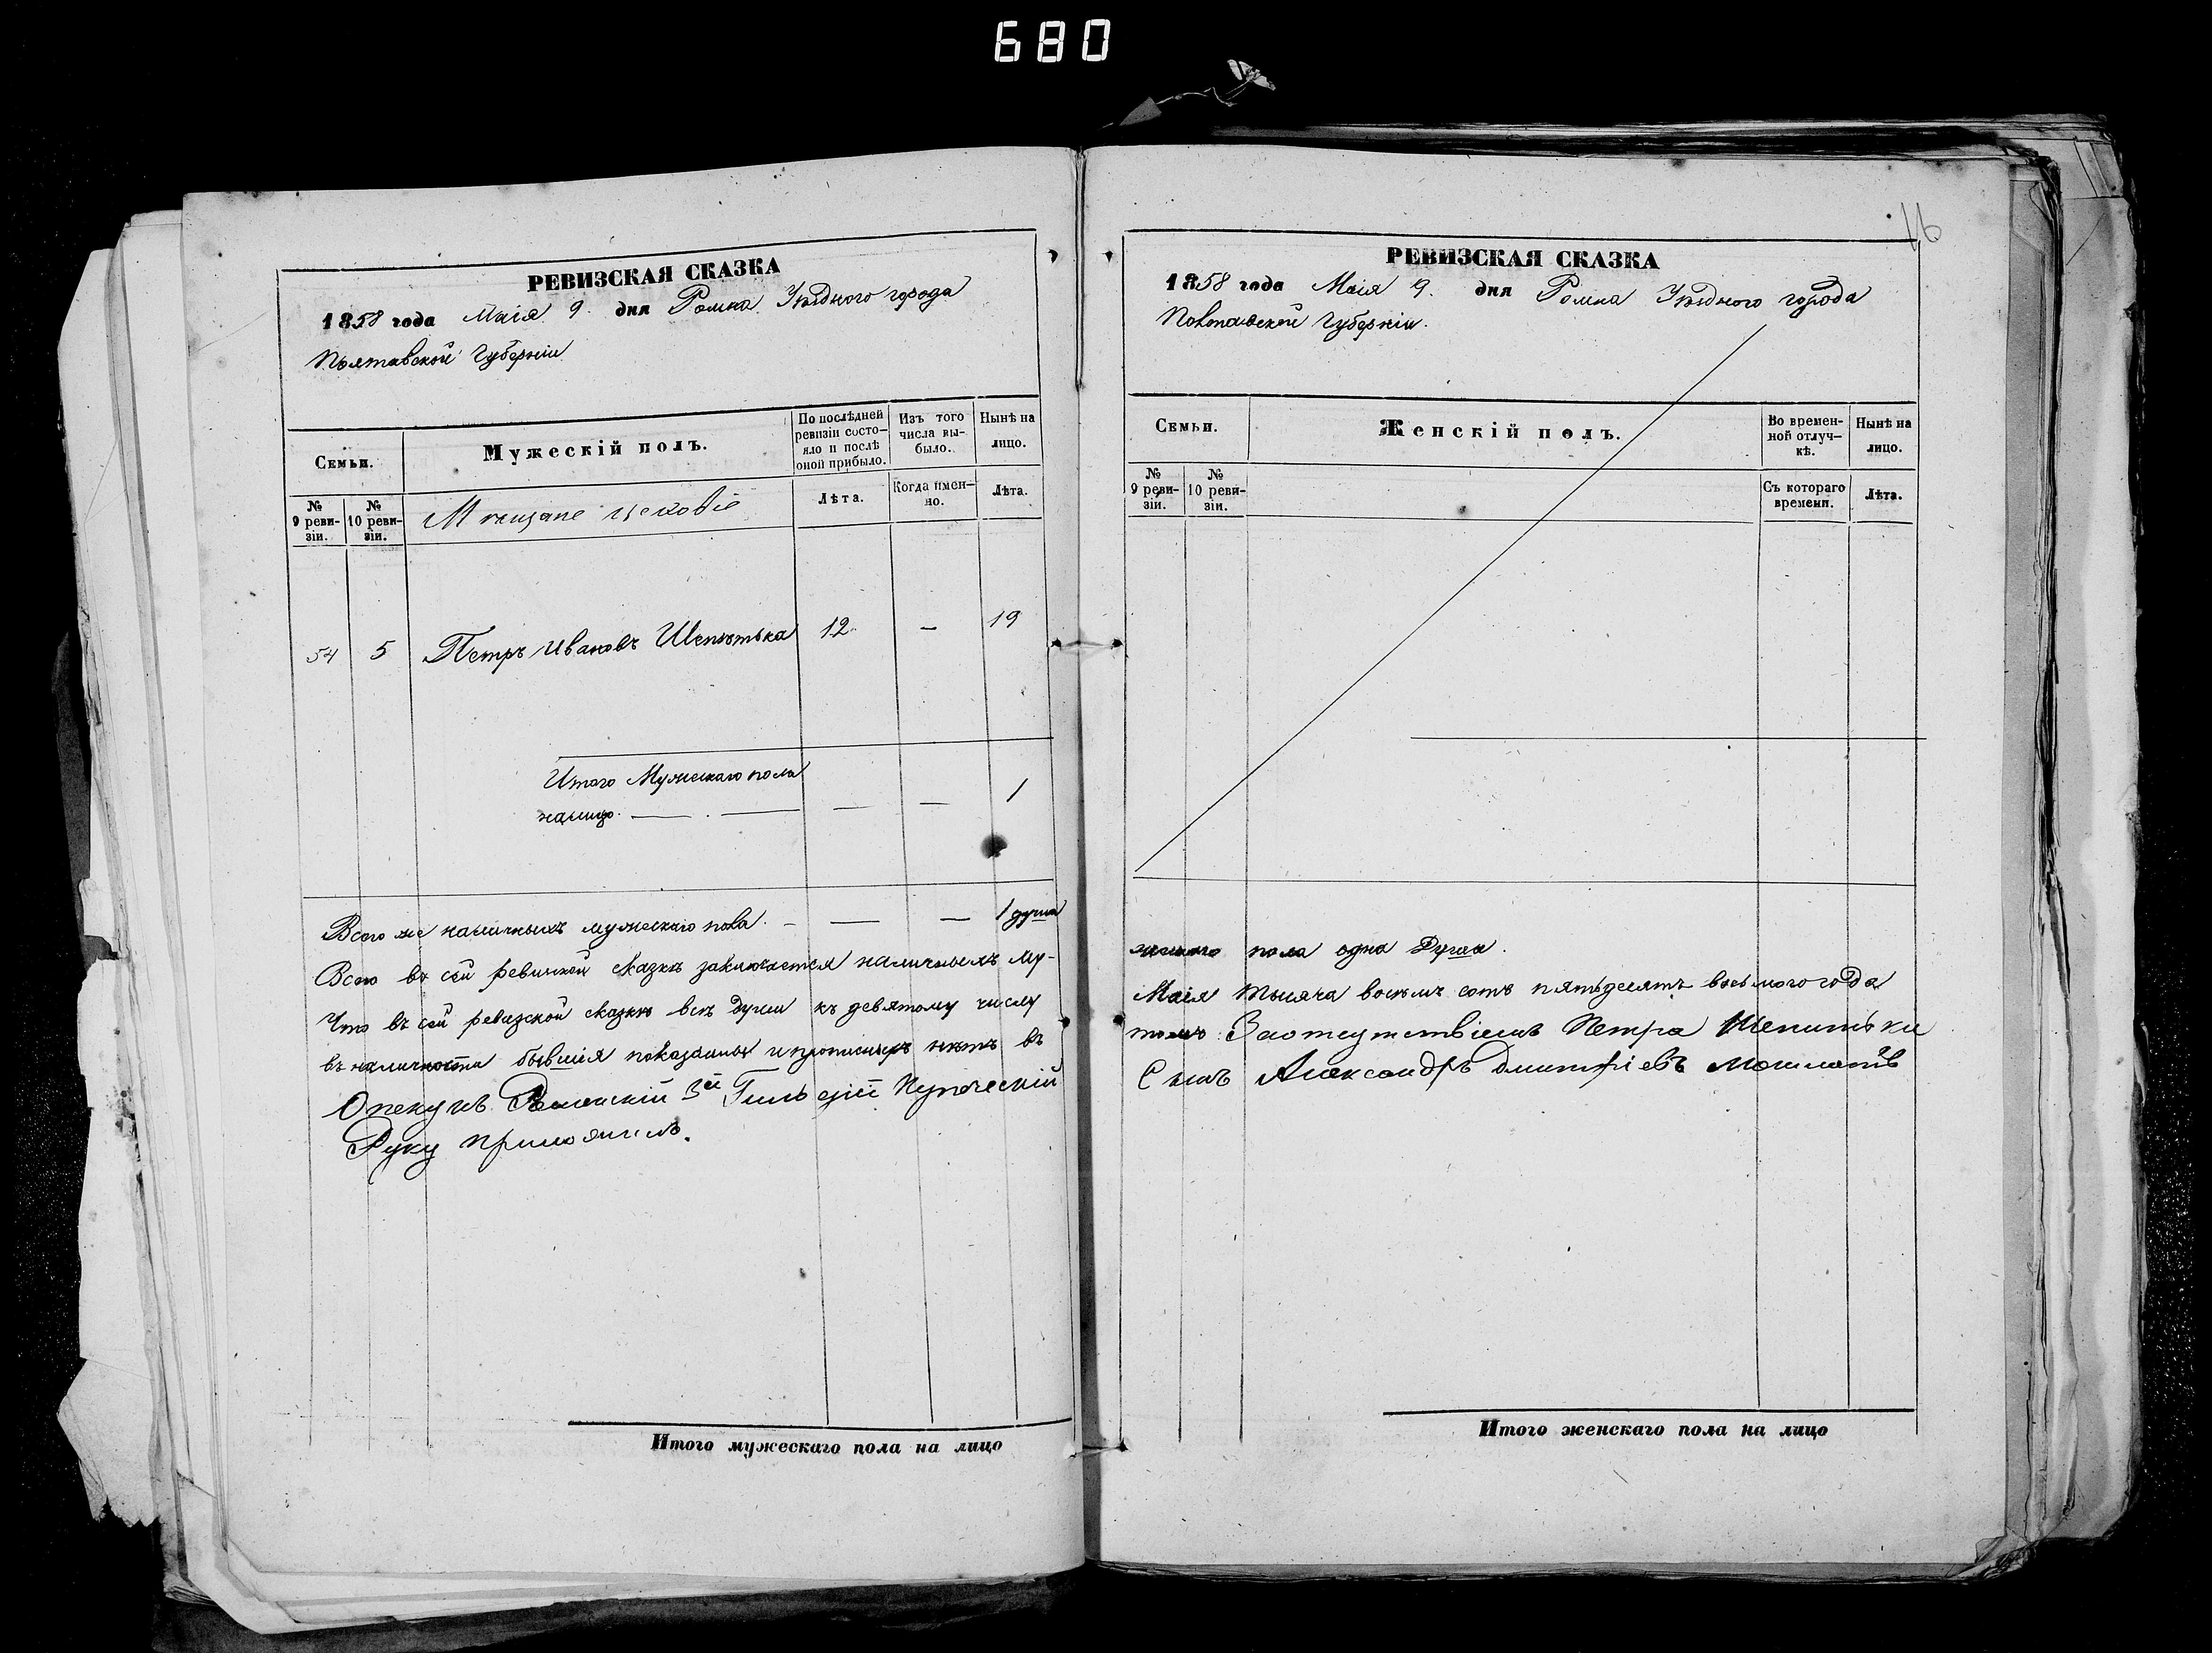 680
16
РЕВИЗСКАЯ СКАЗКА
1858 года Маія 9. дня Ромна Уѣзднаго города
Полтавской Губерніи
Семьи.
Мужескій полъ.
По послѣдней ревизіи состояло и послѣ оной прибыло.
Изъ того числа выбыло.
Нынѣ на лицо.
№ 9 ревизіи.
№ 10 ревизіи.
Мѣщане цеховіе
Лѣта.
Когда именно.
Лѣта.
54 5 Петръ Ивановъ Шепитька 12 — 19
Итого Мужескаго пола
налицо. — — — 1
Всего же наличныхъ мужескаго пола. — — — 1 душа
Всего въ сей ревизской сказкѣ заключается наличныхъ му-
Что въ сей ревизской сказкѣ всѣ души къ девятому числу
въ наличности бывшія показанны и прописныхъ нѣтъ въ
Опекунъ Роменскій 3й Гильдіи Купеческій
Руку приложилъ.
Итого мужескаго пола на лицо
РЕВИЗСКАЯ СКАЗКА
1858 года Маія 9. дня Ромна Уѣзднаго города
Полтавской Губерніи.
Семьи.
Женскій полъ.
Во временной отлучкѣ.
Нынѣ на лицо.
№ 9 ревизіи.
№ 10 ревизіи.
Съ котораго времени.
Лѣта.
жескаго пола одна Душа.
Маія тысяча восемь сотъ пятьдесятъ восьмого года
томъ Заотсутствіемъ Петра Шепитьки
Сынъ Александръ Дмитріевъ
Итого женскаго пола на лицо